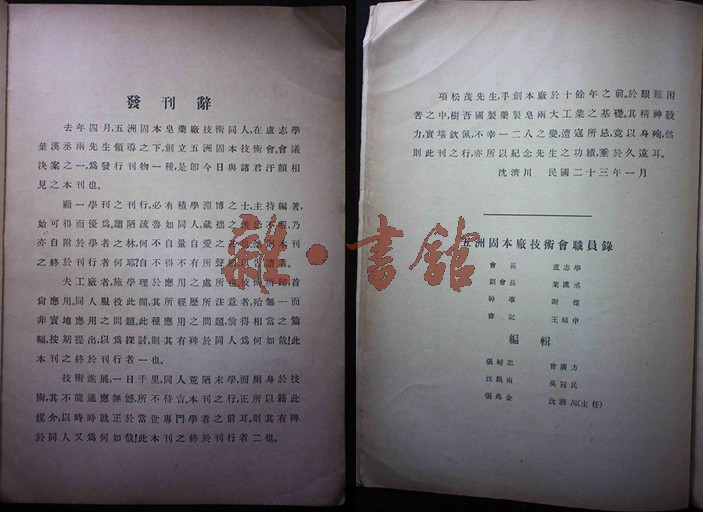 發刊辭
去年四月,五洲固本皂藥廠技術同人,在盧志學
葉漢丞兩先生領導之下,創立五洲固本技術會,會議
決案之一,為發行刊物一種,是卽今日與諸君汗顏相
見之本刊也。
顧一學刊之刊行,必有積學淵博之士,主持編著,
始可得而優為,
亦自附於學者之林,何不自量
之終於刊行者何耶?
夫工廠者,施學理於應用之處所也,
尙應用,同人服役此間,其所經歷,所注意者,殆無一而
非實地應用之問題,此種應用之問題,倘得相當之篇
幅,按期提出,以為探討,則其有裨於同人為何如哉!此
本刊之終於刊行者一也。
技術進展,一日千里,同人荒陋末學,而廁身於技
術,其不能適應無憾,所不待言,正所以藉此
媒介,以時時就正於當世專門學者之前耳。則其有裨
於同人又為何如哉!此本刊之終於刊行者二也。
項松茂先生,手創本廠於十餘年之前。於艱難困
苦之中,樹吾國製藥製皂兩大工業之基礎。其精神毅
力,實堪欽佩。不幸一二八之變,遭寇所忌,竟以身殉。然
則此刊之行,亦所以紀念先生之功績,垂於久遠耳。
沈濟川 民國二十三年一月
五洲固本廠技術會職員錄
會長 盧志學
副會長 葉漢丞
幹事 謝傑
書記 王福申
編輯
張輔忠 曾廣方
沈 南 吳冠民
張兆金 沈濟川(主任)
雜·書館